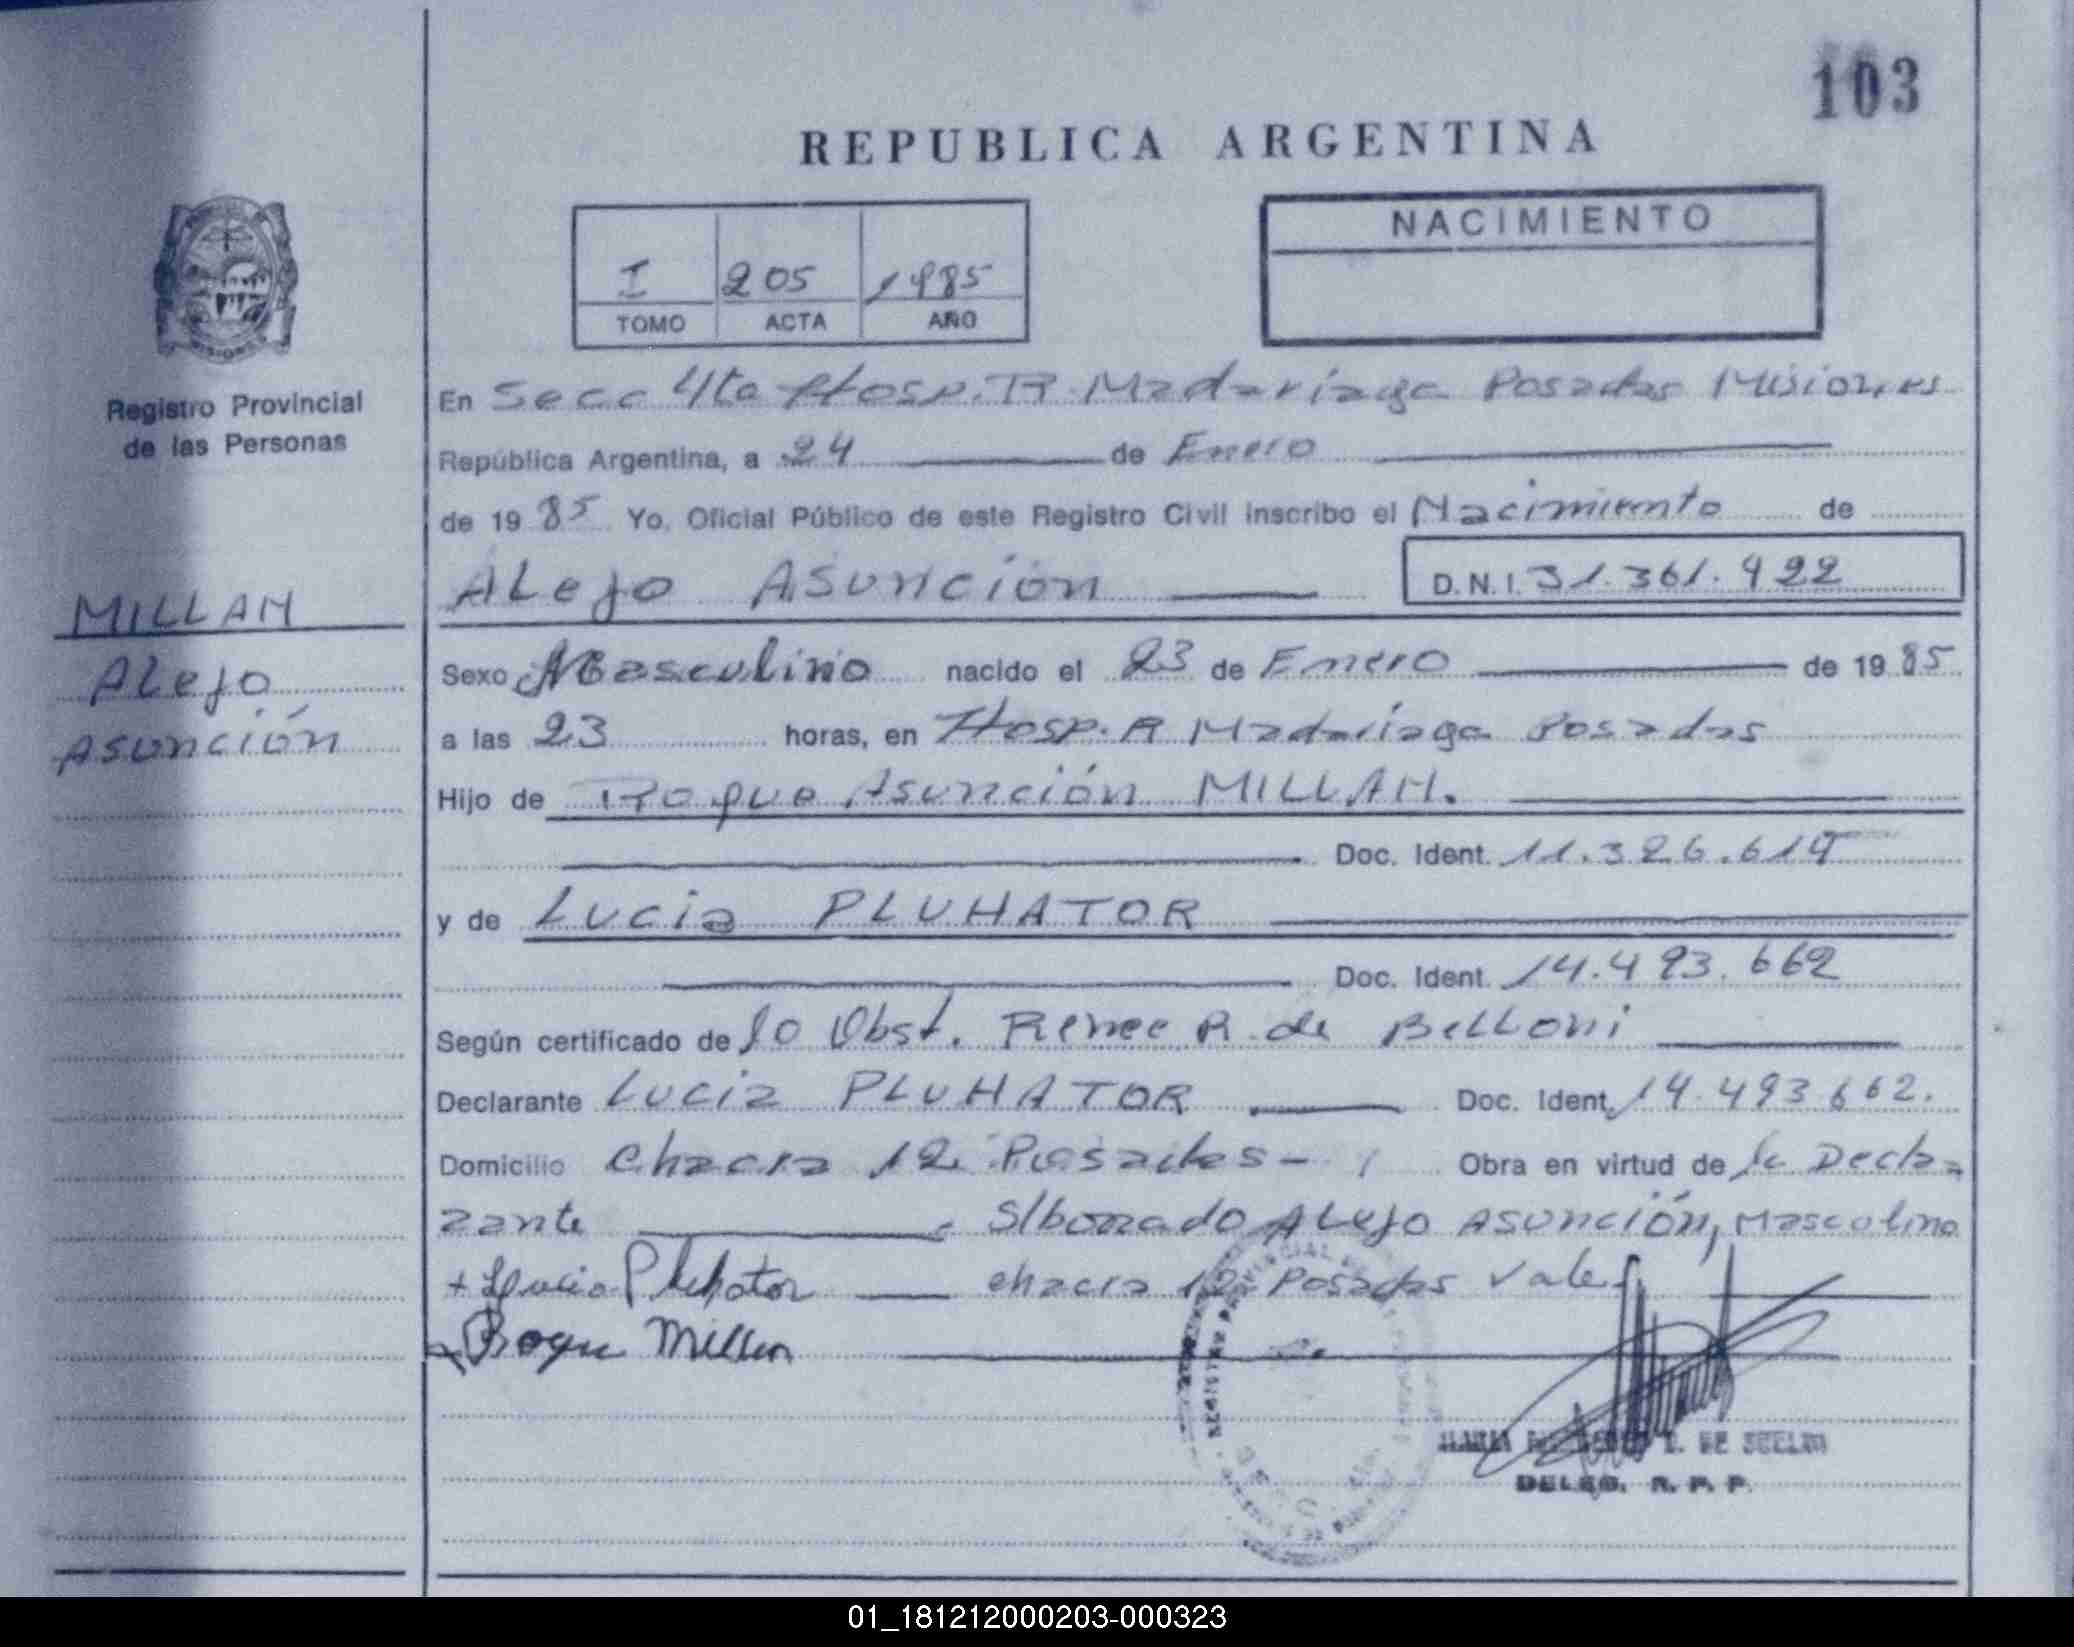 103
REPUBLICA ARGENTINA
I 205 1985
TOMO ACTA AÑO
NACIMIENTO
Registro Provincial
de las Personas
MILLAN
Alejo
Asunción
En Secc 4ta Hosp. R. Madariaga Posadas Misiones
República Argentina, a 24 de Enero
de 1985 Yo, Oficial Público de este Registro Civil inscribo el Nacimiento de
Alejo Asunción D.N.I. 31.361.422
Sexo Masculino nacido el 23 de Enero de 1985
a las 23 horas, en Hosp. R Madariaga Posadas
Hijo de Roque Asunción MILLAN.
Doc. Ident. 11.326.619
y de Lucia PLUHATOR
Doc. Ident. 14.493.662
Según certificado de la Obst. Renee R. de Belloni
Declarante Lucia PLUHATOR Doc. Ident. 14.493.662.
Domicilio Chacra 12 Posadas - Obra en virtud de la Decla-
rante S/borrado Alejo Asunción, Masculino
+ Lucia Pluhator chacra 12 Posadas Vale
Roque Millan
DE
DELEG. R. P. P.
01_181212000203-000323